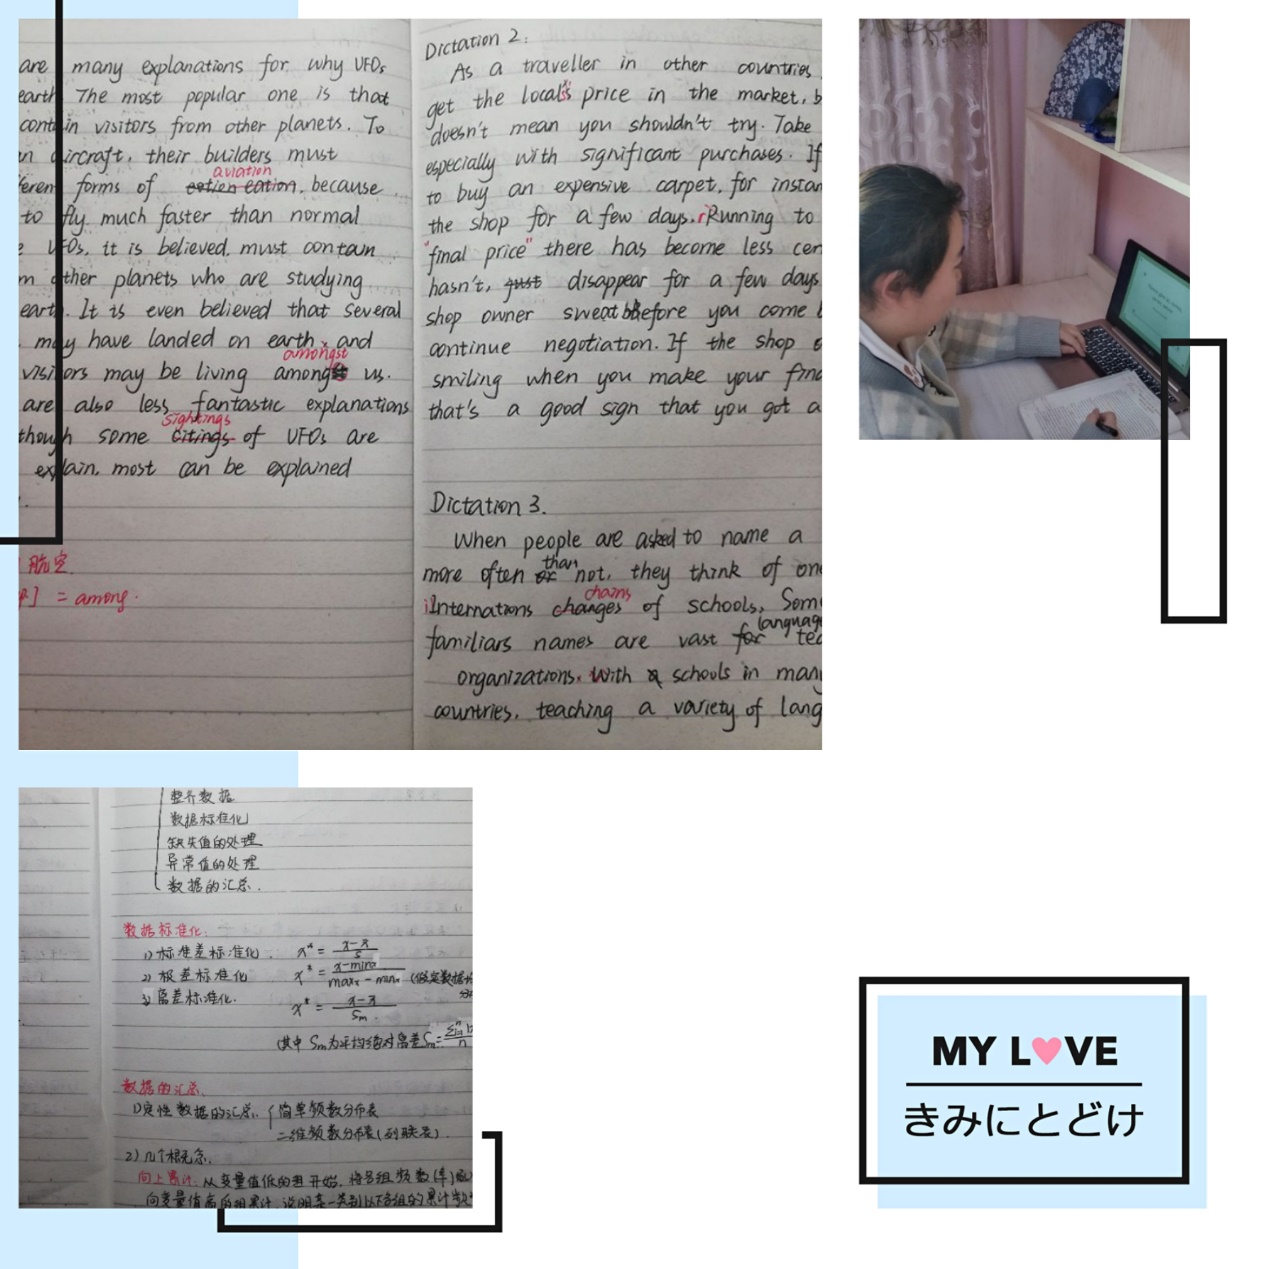 are many explanations for why UFOs
earth The most popular one is that
contain visitors from other planets. To
an aircraft, their builders must
aviation
ferent forms of eation, because
to fly much faster than normal
e UFOs, it is believed, must contain
m other planets who are studying
earth. It is even believed that several
may have landed on earth, and
amongst
visitors may be living among us.
are also less fantastic explanations
sightings
though some citings of UFOs are
explain, most can be explained
航空
= among.
Dictation 2:
As a traveller in other countries
get the local's price in the market, b
doesn't mean you shouldn't try. Take
especially with significant purchases. If
to buy an expensive carpet, for instan
the shop for a few days. rRunning to
"final price" there has become less cer
hasn't, just disappear for a few days
shop owner sweat before you come b
continue negotiation. If the shop o
smiling when you make your fina
that's a good sign that you got a
Dictation 3.
When people are asked to name a
than
more often or not, they think of one
chains
iInternations changes of schools, Some
language
familiars names are vast for tea
organizations. With a schools in many
countries, teaching a variety of lang
整齐数据
数据标准化
缺失值的处理
异常值的处理
数据的汇总.
数据标准化:
1) 标准差标准化. x* = (x-x̄)/s
2) 极差标准化 x* = (x-minx)/(maxx-minx) (假定数据
3) 离差标准化. x* = (x-x̄)/Sm
(其中 Sm为平均绝对离差Sm=
数据的汇总.
1)定性数据的汇总. {简单频数分布表
二维频数分布表(列联表).
2) 几个概念.
向上累计: 从变量值低的组开始, 将各组频数(率)
向变量值高的组累计. 说明某一类别以下各组的累计
MY LOVE
きみにとどけ